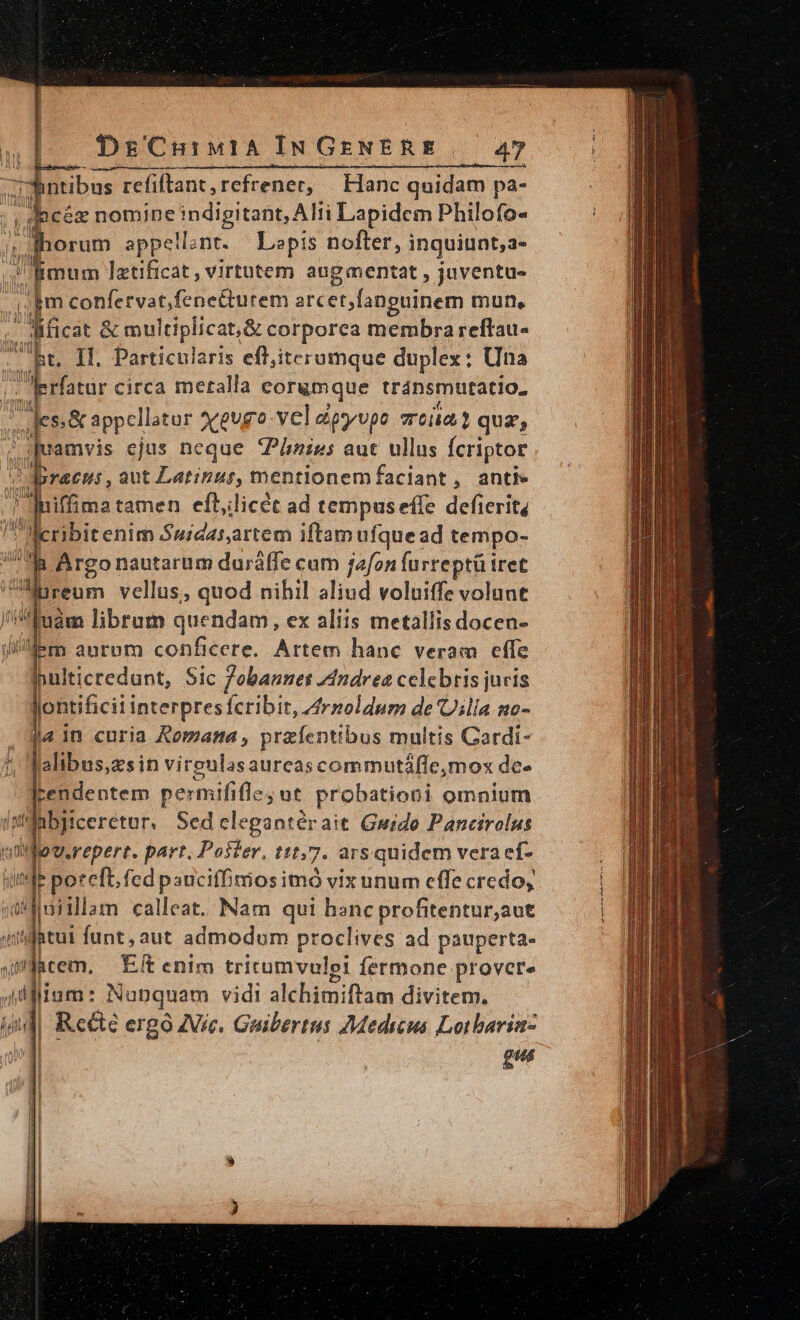 DE CHIMIA IN GENERE 47
ntibus resistant, refrenet, Hanc quidam pa-
nacéæ nomine indigitant, Alii Lapidem Philoso-
phorum appellant. Lapis noster, inquiunt, a-
nimum lætificat, virtutem augmentat, juventu-
tem conservat, senectutem arcet, sanguinem mun,
dificat & multiplicat, & corporea membra restau-
at. II. Particularis est, iterumque duplex: Una
versatur circa metalla eorumque tránsmutatio,
es, & appellatur χευσο vel ἀργυρο ποιία? quæ,
quamvis ejus neque Plinius aut ullus scriptor
Græcus, aut Latinus, mentionem faciant, anti-
quissima tamen est, licét ad tempus esse desierit,
scribit enim Suidas, artem istam usque ad tempo-
a Argonautarum durásse cum jason surreptũ iret
aureum vellus, quod nihil aliud voluisse volunt
quàm librum quendam, ex aliis metallis docen-
em aurum conficere. Artem hanc veram esse
multi credunt, Sic Johannes Andrea celebris juris
pontificii interpres scribit, Arnoldum de Villa no-
va in curia Romana, præsentibus multis Cardi-
nalibus, æs in virgulas aureas commutásse, mox de-
pendentem permisisse, ut probationi omnium
subjiceretur. Sed elegantèr ait Guido Pancirolus
nov. repert. part. Poster. tit. 7. ars quidem vera es-
se potest, sed paucissimos imò vix unum esse credo,
qui illam calleat. Nam qui hanc profitentur, aut
fatui sunt, aut admodum proclives ad pauperta-
tem. Est enim tritum vulgi sermone prover-
bium: Nunquam vidi alchimistam divitem.
Rectè ergò Nic. Guibertus Medicus Lotharin-
gus